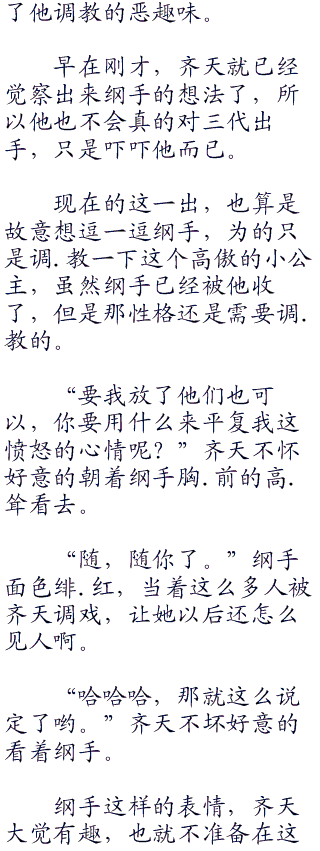 了他调教的恶趣味。
早在刚才，齐天就已经
觉察出来纲手的想法了，所
以他也不会真的对三代出
手，只是吓吓他而已。
现在的这一出，也算是
故意想逗一逗纲手，为的只
是调.教一下这个高傲的小公
主，虽然纲手已经被他收
了，但是那性格还是需要调.
教的。
“要我放了他们也可
以，你要用什么来平复我这
愤怒的心情呢？”齐天不怀
好意的朝着纲手胸.前的高.
耸看去。
“随，随你了。”纲手
面色绯.红，当着这么多人被
齐天调戏，让她以后还怎么
见人啊。
“哈哈哈，那就这么说
定了哟。”齐天不坏好意的
看着纲手。
纲手这样的表情，齐天
大觉有趣，也就不准备在这